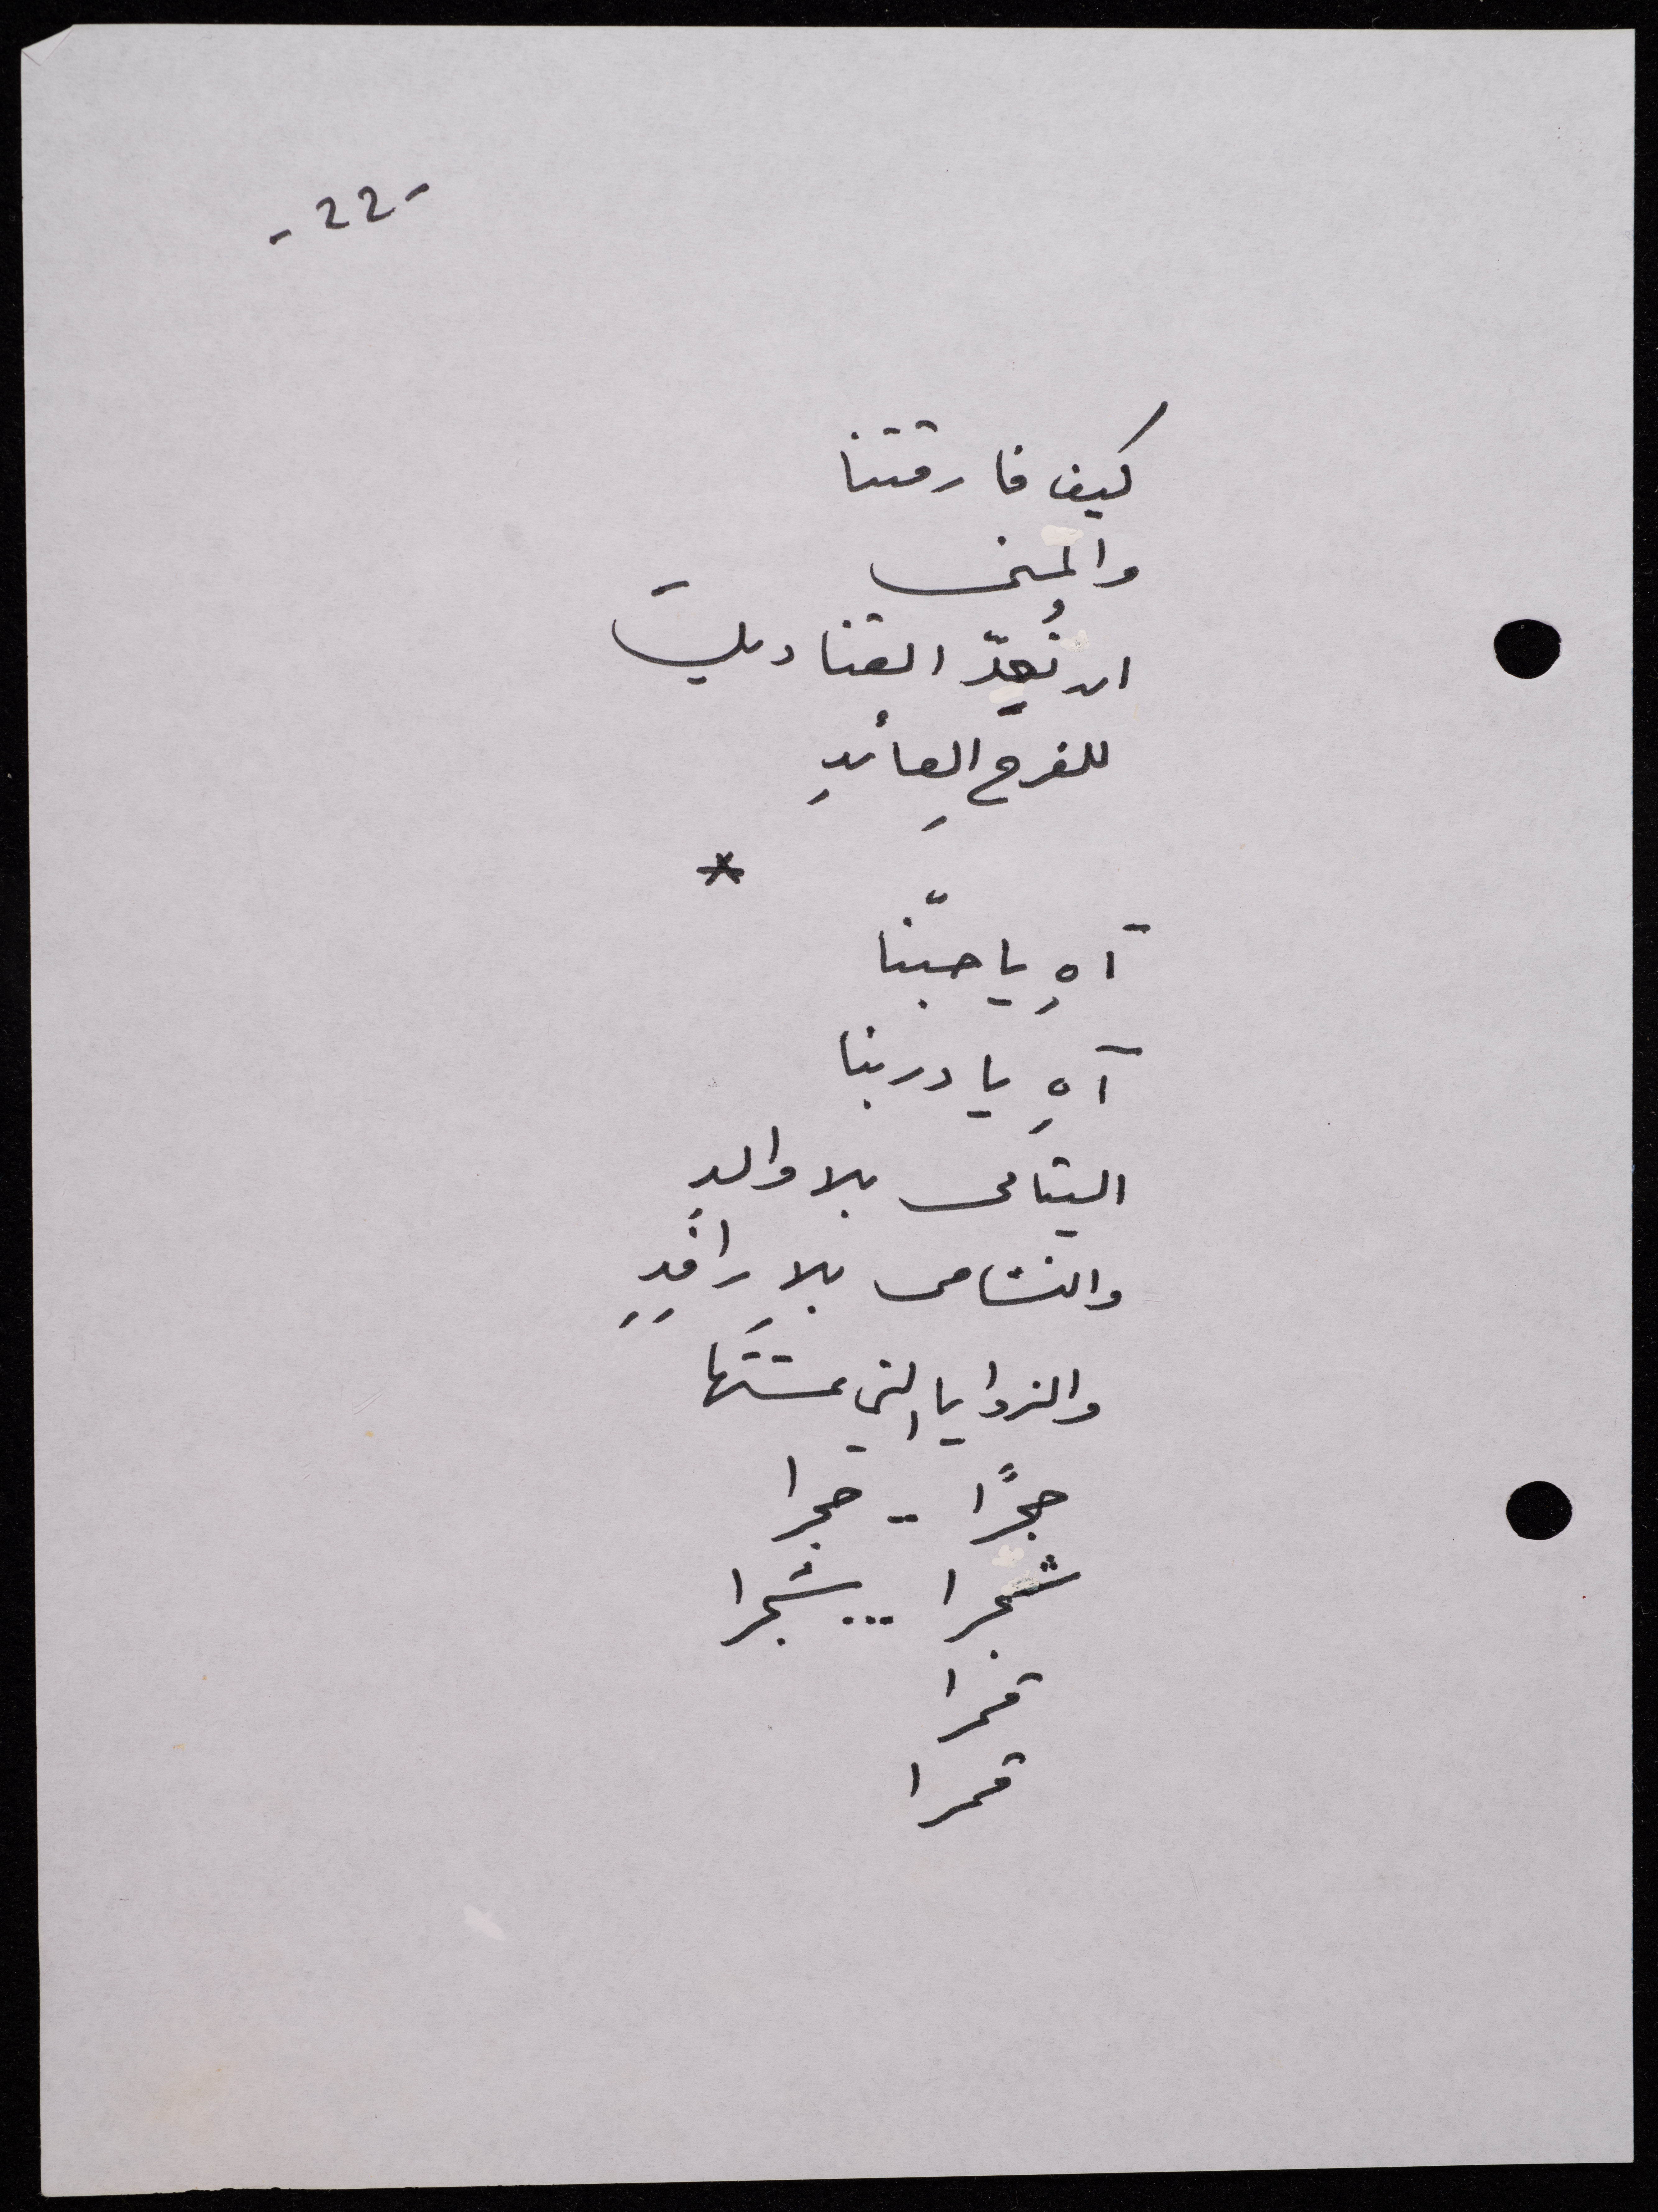 -22-
كيف فارقتنا
والمنى
ان نُعِدّ القناديلَ
للفرحِ العائدِ
*
آهِ يا حبّنا
آهِ يا دربنا
اليتامى بلا والدٍ
والنشامى بلا رافدِ
والزوايا التي عشتَها
حجرًا .. حجرا
شجرا ... شجرا
قمرا
قمرا